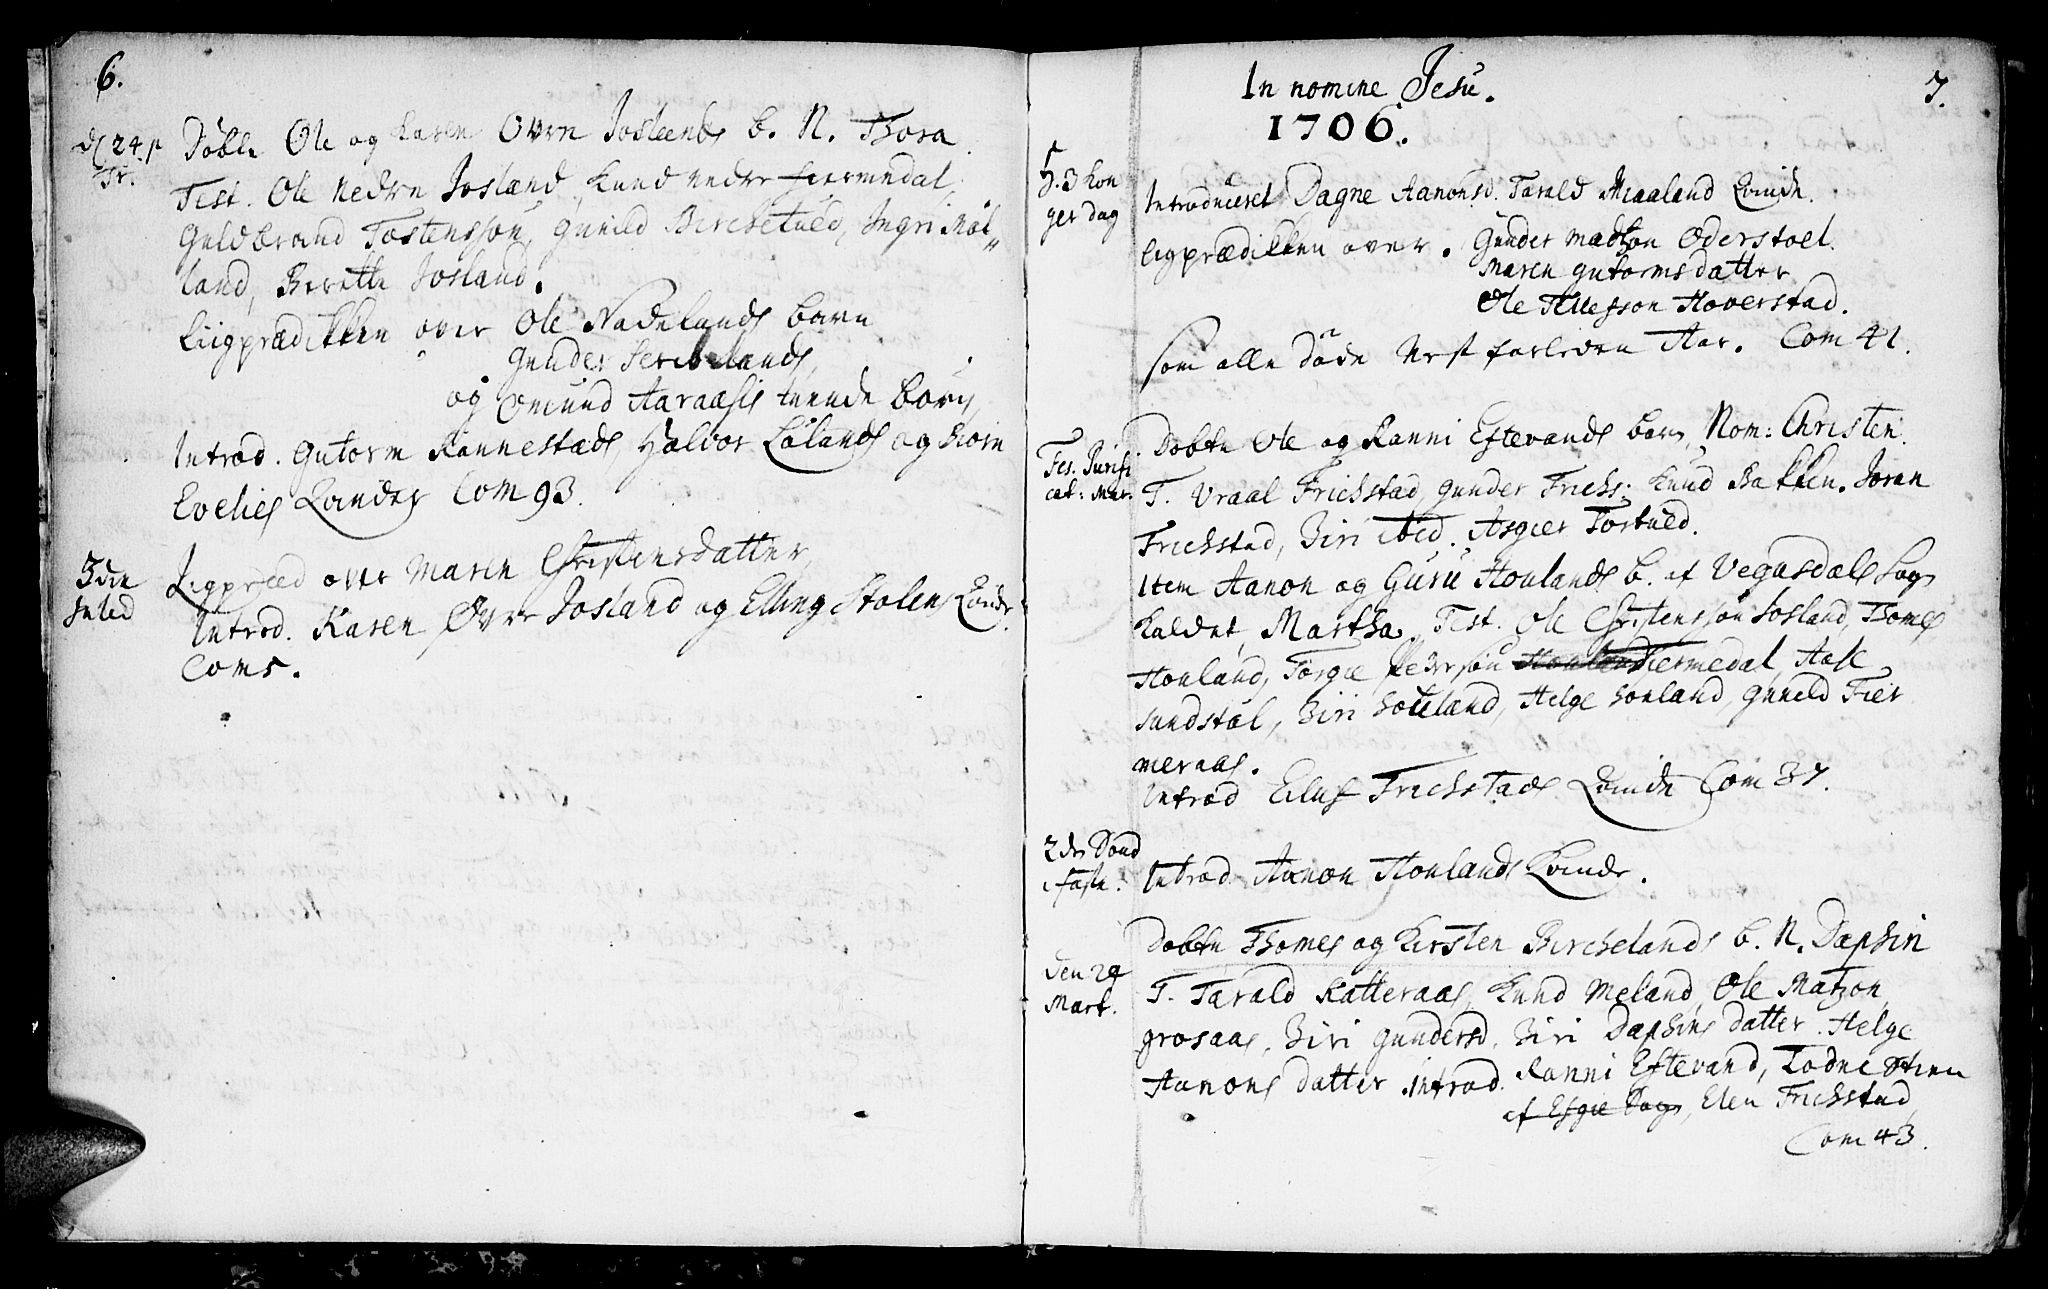 6.
D 24 p Tr.
Døbte Ole og Karen Øvre Joslands b. N. Thora
Test. Ole Nedre Josland, Knud nedre Fiermedal,
Guldbrand Tostenssøn, Gunild Birchetued, Ingri Møl„
land, Berette Josland.
Liigprædikken over Ole Nadelands barn
Gunder Lands,
og Omund Aaraasis tuende børn,
Introd. Gutorm Rannestads, Haldor Lølands og Biørn
Evelies Quinder Com 93.
3die Juledag
Ligpræd over Maren Christensdatter
Introd. Karen Øvre Josland og Elling Stolens Quinde
Com 5.
7.
In nomine Jesu.
1706.
H. 3 Kon
ger dag
Introduceret Dagne Aanonsd. Tarald Miaaland Quinde.
Ligprædikken over. Gunder Madtzon Oderstoel.
Maren Gutormsdatter
Ole Tellefsson Hoverstad.
som alle døde nest forleden Aar. Com 41.
Fes. Purifi
cat: Mar.
Døbte Ole og Ranni Eftevands barn, Nom: Christen.
T. Vraal Frichstad, Gunder Frichs: Knud Bakken. Joren
Frichstad, Biri ibid. Asgier Tortued.
Item Aanon og Guru Honlands b. af Vegusdals Sogn
kaldet Martha. Test. Ole Christenssøn Josland, Thomes
Honland, Torgie Pederssøn Honland Fiermedal, Aase
Sundstøl, Biri Honland, Helge Honland, Gunild Fier
meraas.
Introd Eiluf Frichstads Quinde Com 37.
2den Sønd
i Faste.
Introd Aanon Honlands Quinde.
den 29
Mart.
Døbte Thomes og Kirsten Birchelands b. N. Daphin
T. Tarald Katteraas, Knud Meland, Ole Matzon
Grosaas, Biri Gundersd, Biri Daphins datter. Helge
Aanons datter. Introd. Ranni Eftevand, Todne Stien
af Efgie Sogn, Elen Frichstad,
Com 43.